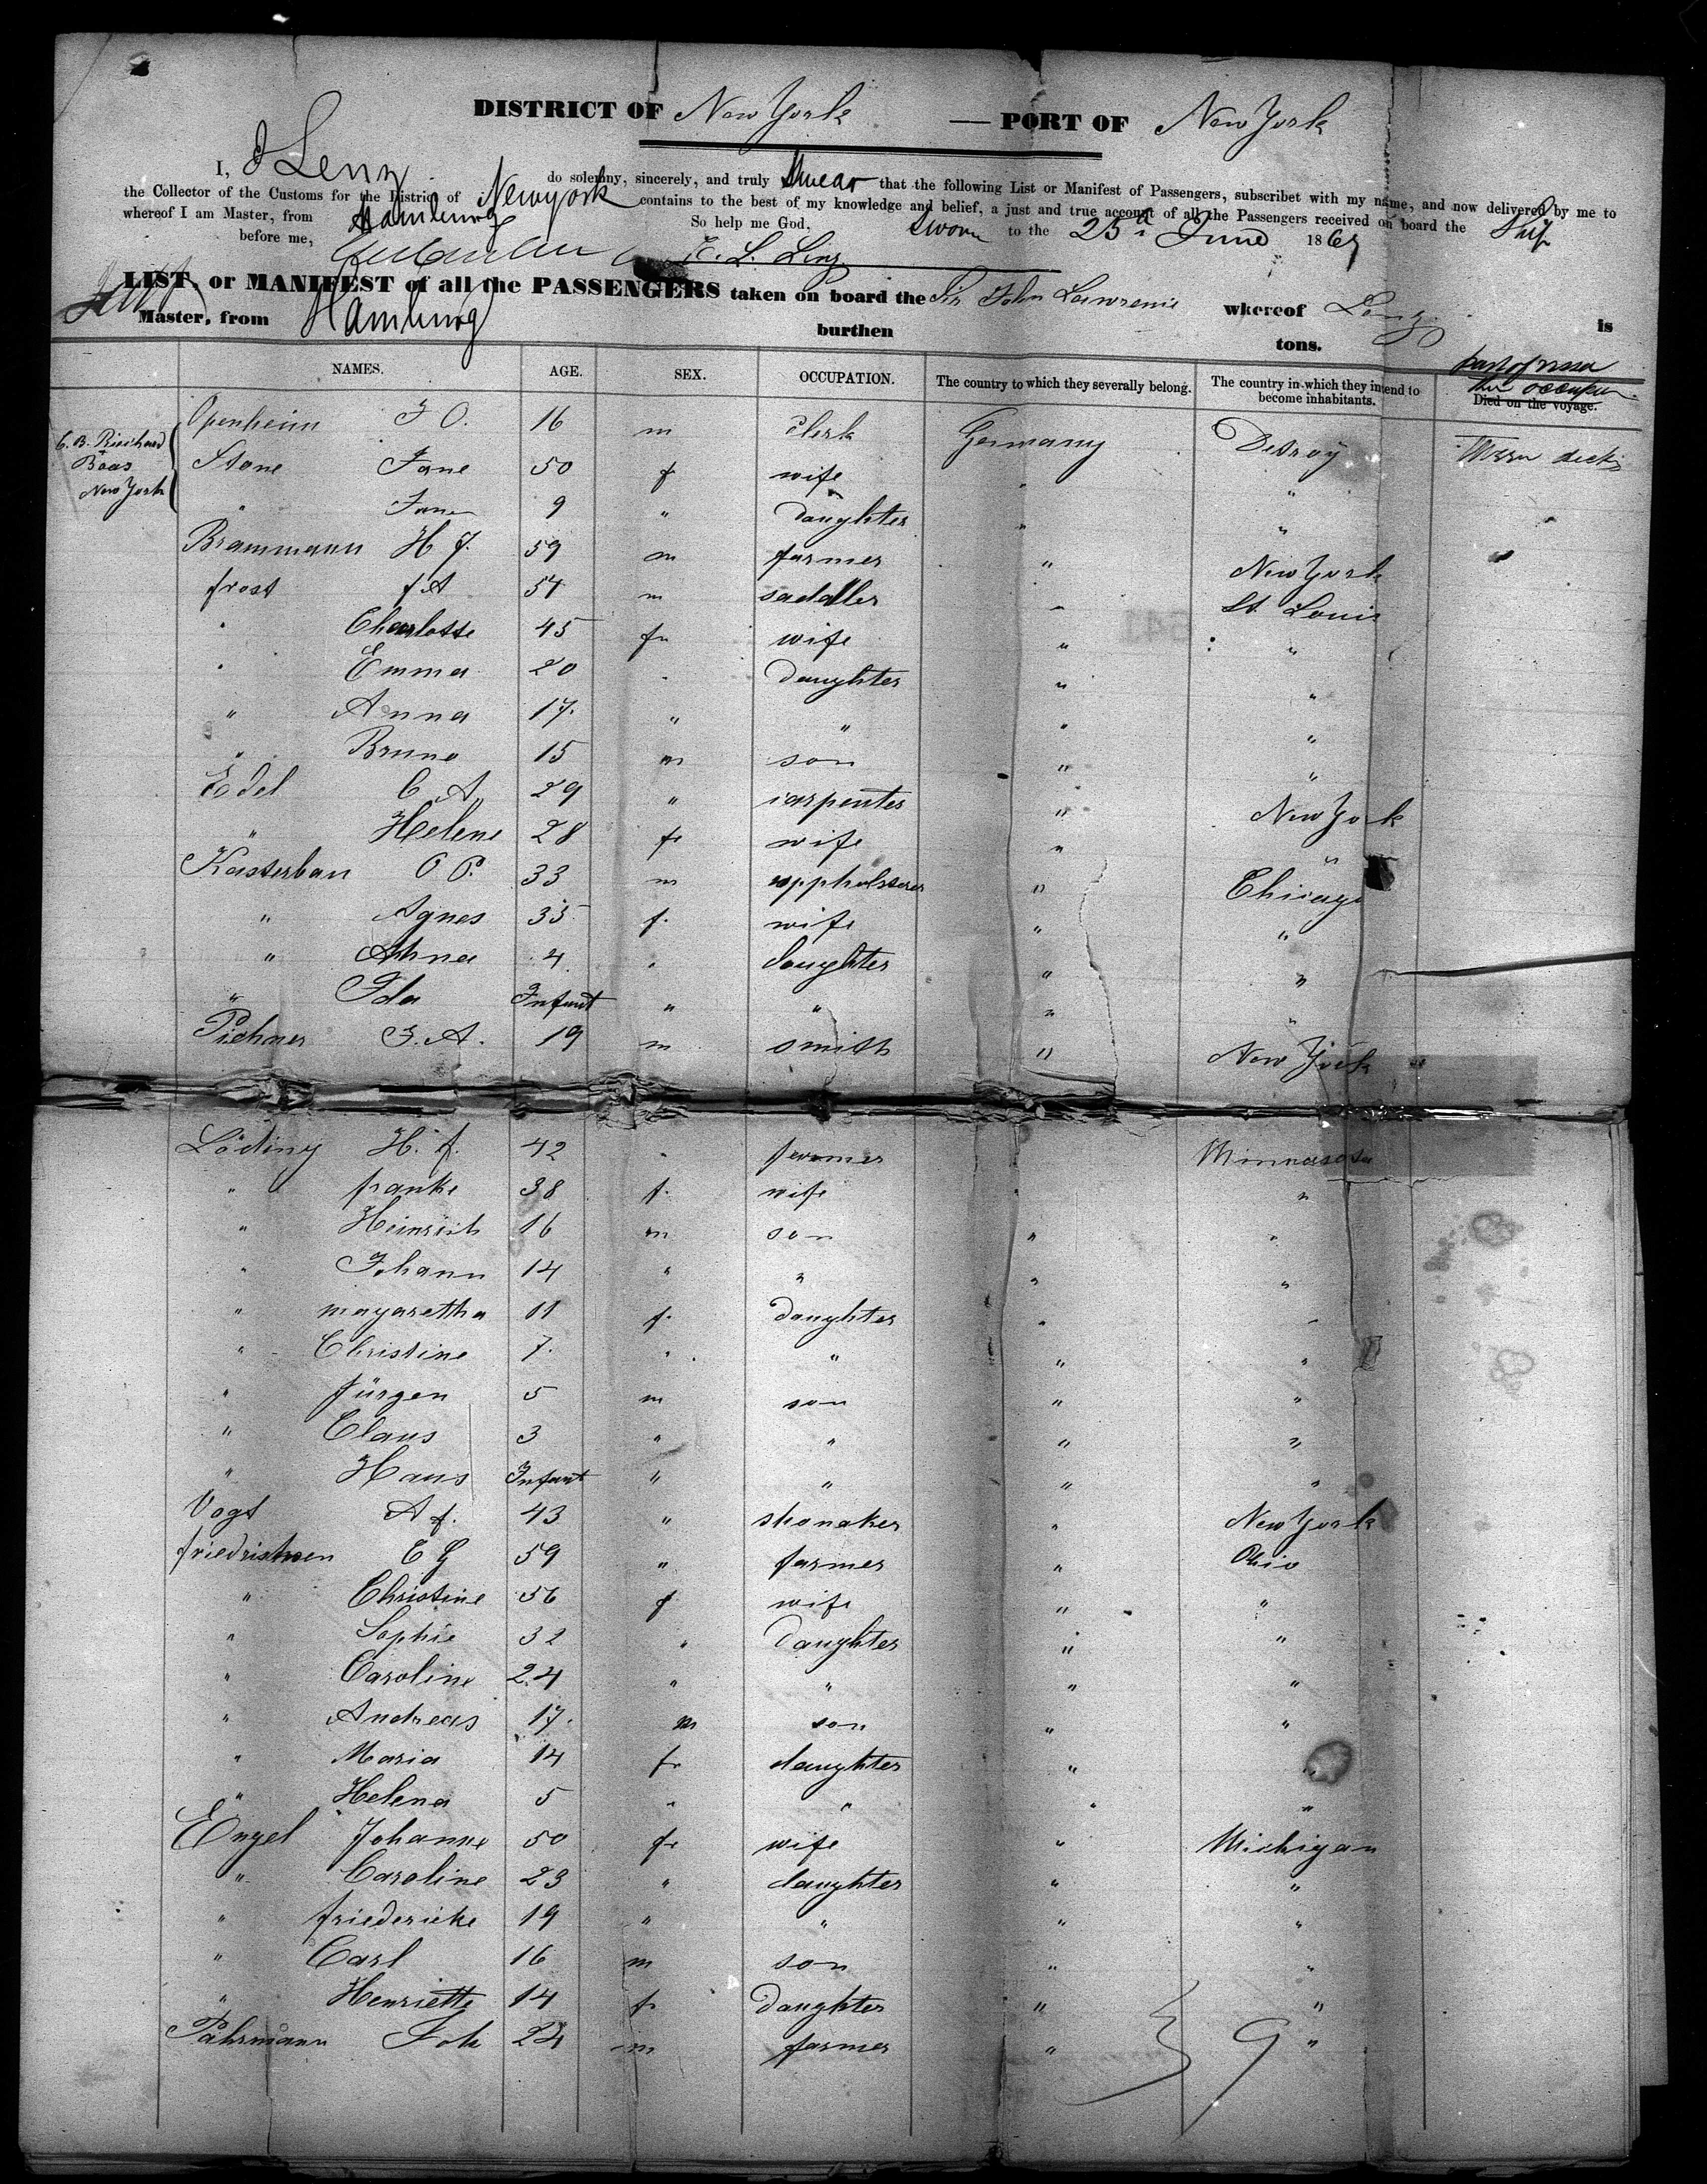 DISTRICT OF New York — PORT OF New York
I, Lenz do solemny, sincerely, and truly swear that the following List or Manifest of Passengers, subscribet with my name, and now delivered by me to
the Collector of the Customs for the District of Newyork contains to the best of my knowledge and belief, a just and true account of all the Passengers received on board the Ship
whereof I am Master, from Hamburg So help me God, Sworn to the 25 June 186
before me,
LIST, or MANIFEST of all the PASSENGERS taken on board the Sir John Lawrence whereof Lenz is
Master, from Hamburg burthen tons.
NAMES. AGE. SEX. OCCUPATION. The country to which they severally belong. The country in which they intend to become inhabitants. Died on the voyage.
part of vessel
they occupie
C. B. Richard
+
Boas
New York
Openheim J O. 16 m clerk Germany Detroy deck
Stone Jane 50 f wife " "
" Jane 9 " daughter " "
Brammann H J. 59 m farmer " New York
frost f A 54 m sadaller " St Louis
" Charlotte 45 fr wife " "
" Emma 20 " daughter " "
" Anna 17. " " " "
" Bruno 15 m son " "
Edel C A 29 " carpenter " New York
" Helene 28 fr wife " "
Kasterban O P. 33 m uppholsterer " Chicago
" Agnes 35 f. wife " "
" Anna 4 " daughter " "
" Ida Infant " " " "
Pichner J. A. 19 m smith " New York
Löding H. f. 42 " farmer Minnasota
" franke 38 f. wife " "
" Heinrich 16 m son " "
" Johann 14 " " " "
" magarettha 11 f. daughter " "
" Christine 7. " " " "
" Jürgen 5 m son " "
" Claus 3 " " " "
" Hans Infant " " " "
Vogt A f. 43 " shomaker " New York
friedrichsen C G 59 " farmer " Ohio
" Christine 56 f wife " "
" Sophie 32 " daughter " "
" Caroline 24 " " " "
" Andreas 17. m son " "
" Maria 14 fr daughter " "
" Helena 5 " " " "
Engel Johanne 50 fr wife " Michigan
" Caroline 23 " daughter " "
" friedericke 19 " " " "
" Carl 16 m son " "
" Henriette 14 f daughter " "
Pahrmann Joh 24 m farmer " "
9